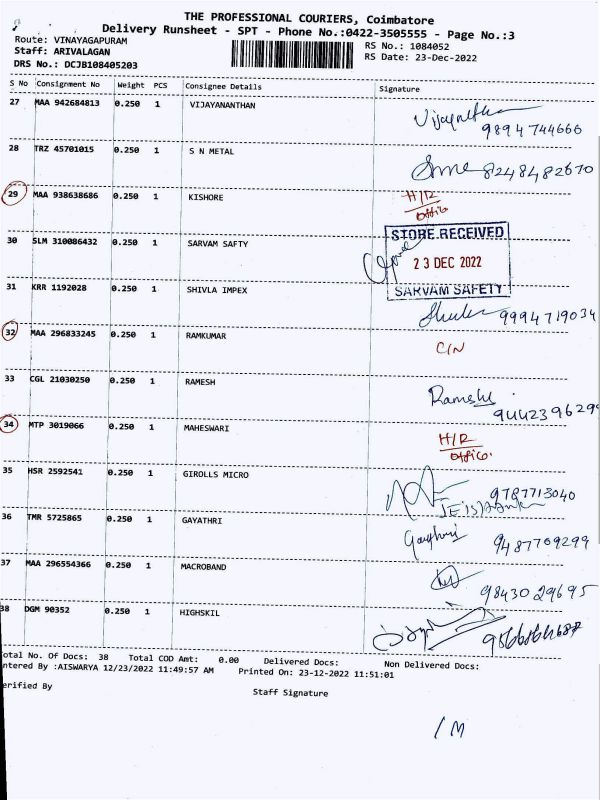 THE PROFESSIONAL COURIERS, Coimbatore
Delivery Runsheet - SPT - Phone No.:0422-3505555 - Page No.:3
Route: VINAYAGAPURAM
RS No.: 1084052
Staff: ARIVALAGAN
RS Date: 23-Dec-2022
DRS No.: DCJB108405203
S No Consignment No Weight PCS Consignee Details Signature
27 MAA 942684813 0.250 1 VIJAYANANTHAN
9894744666
28 TRZ 45701015 0.250 1 S N METAL 8248482670
29 MAA 938638686 0.250 1 KISHORE H/R
office
30 SLM 310086432 0.250 1 SARVAM SAFTY
STORE RECEIVED
23 DEC 2022
SARVAM SAFETY
31 KRR 1192028 0.250 1 SHIVLA IMPEX
9994719034
32 MAA 296833245 0.250 1 RAMKUMAR C/N
33 CGL 21030250 0.250 1 RAMESH Ramesh
9442396299
34 MTP 3019066 0.250 1 MAHESWARI H/R
office.
35 HSR 2592541 0.250 1 GIROLLS MICRO
9787713040
36 TMR 5725865 0.250 1 GAYATHRI Gayathri
9487709299
37 MAA 296554366 0.250 1 MACROBAND
9843029695
38 DGM 90352 0.250 1 HIGHSKIL
Total No. Of Docs: 38 Total COD Amt: 0.00 Delivered Docs: Non Delivered Docs:
ntered By :AISWARYA 12/23/2022 11:49:57 AM Printed On: 23-12-2022 11:51:01
erified By
Staff Signature
/ M